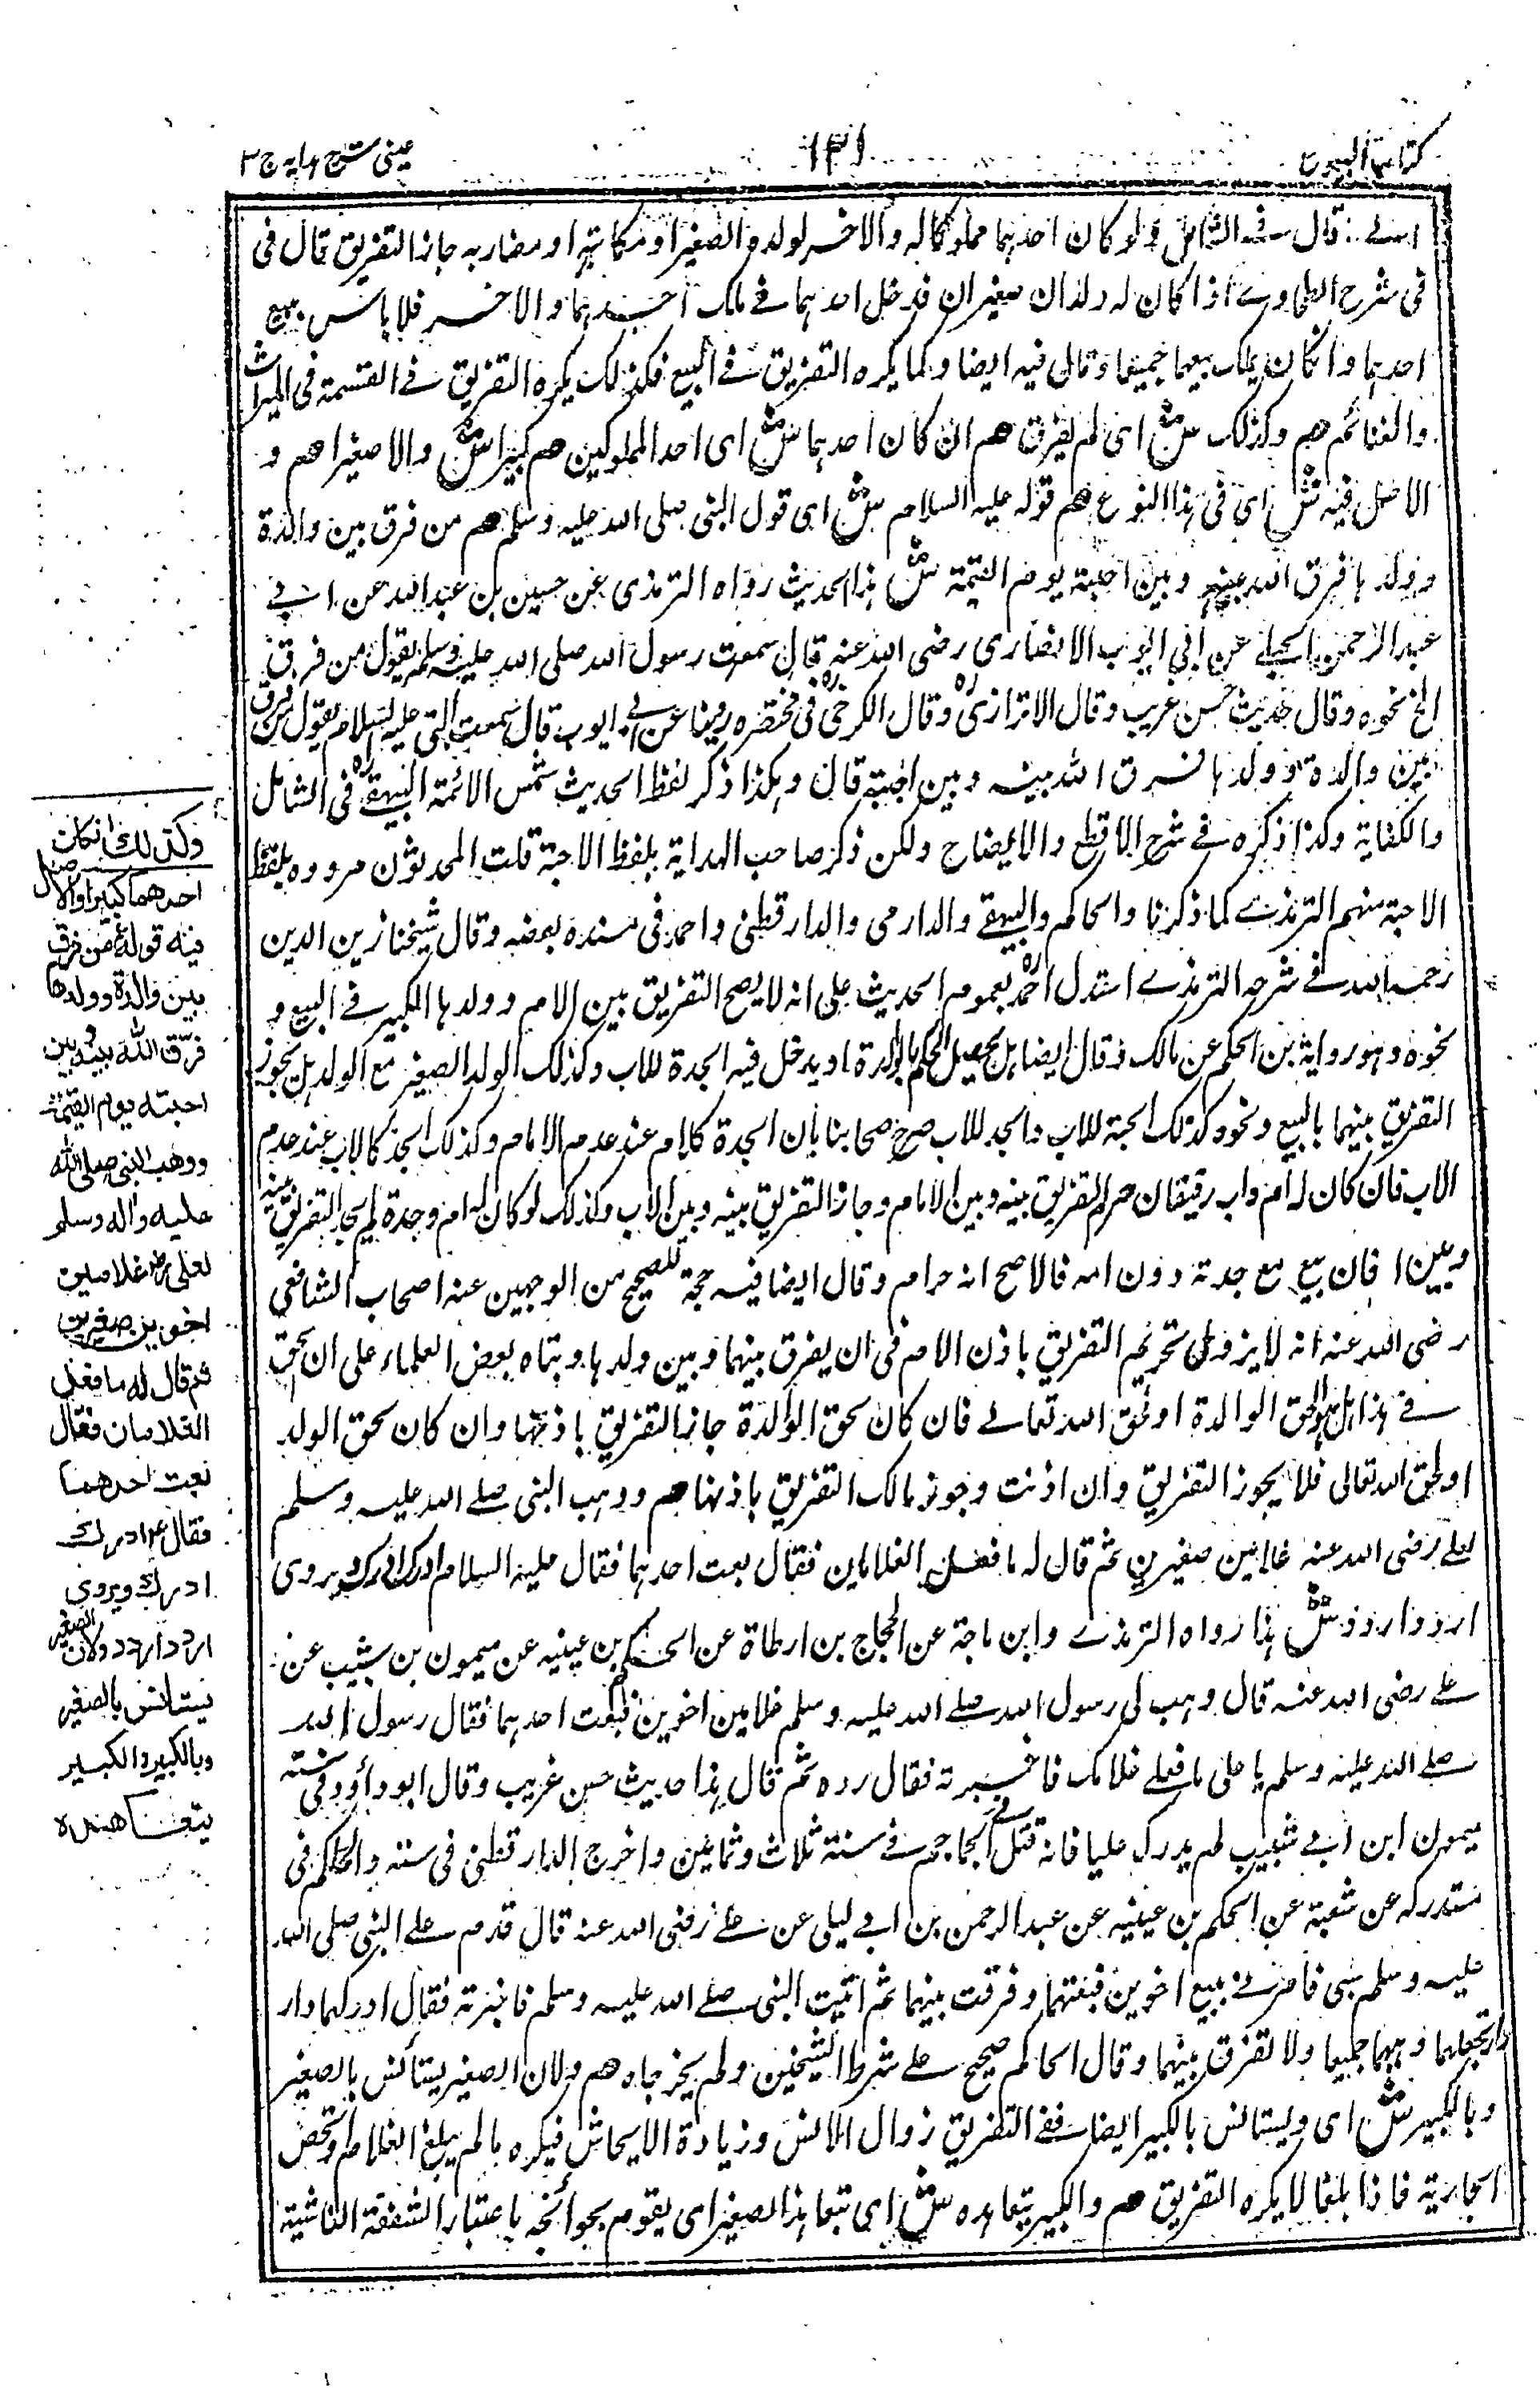 كتاب البيوع
١٣١
عينى شرح هدايه ج ٣
قال فى الشامل ولو كان احدهما مملوكا له والاخر لولده الصغير او مكاتبه او مضاربه جاز التفريق قال فى
فى شرح الطحاوى اذا كان له ولدان صغيران فدخل احدهما فى ملك احدهما والاخر فلا باس ببيع
احدهما وان كان يملك بيعهما جميعا وقال فيه ايضا وكما يكره التفريق فى البيع فكذلك يكره التفريق فى القسمة فى الميراث
والغنائم هم وكذلك ش اى لم يفرق هم ان كان احدهما ش اى احد المملوكين هم كبيرا ش والا صغيرا هم و
الاصل فيه ش اى فى هذا النوع هم قوله عليه السلام ش اى قول النبى صلى الله عليه وسلم هم من فرق بين والدة
وولدها فرق الله بينه وبين احبته يوم القيمة ش هذا الحديث رواه الترمذى عن حسين بن عبد الله عن ابى
عبد الرحمن الحبلى عن ابى ايوب الانصارى رضى الله عنه قال سمعت رسول الله صلى الله عليه وسلم يقول من فرق
الخ نحوه وقال حديث حسن غريب وقال الاترازى ره وقال الكرخى ره فى مختصره روينا عن ابى ايوب قال سمعت النبى عليه السلام يقول من فرق
بين والدة وولدها فرق الله بينه وبين احبته قال وهكذا ذكر لفظ الحديث شمس الائمة البيهقى ره فى الشامل
والكفاية وكذا ذكره فى شرح الاقطع والايضاح ولكن ذكر صاحب الهداية بلفظ الاحبة قلت المحدثون مرووه بلفظ
الاحبة منهم الترمذى كما ذكرنا والحاكم والبيهقى والدارمى والدارقطنى واحمد فى مسنده بعضه وقال شيخنا زين الدين
رحمه الله فى شرحه الترمذى استدل احمد ره بعموم الحديث على انه لا يصح التفريق بين الام وولدها الكبير فى البيع و
نحوه وهو رواية بن الحكم عن مالك وقال ايضا هل يحصل الحكم بالوالدة او يدخل فيه الجدة للاب وكذلك الولد الصغير مع الولد هل يجوز
التفريق بينهما بالبيع ونحوه كذلك الجدة للاب والجد للاب صرح صحابنا بان الجدة كالام عند عدم الامام وكذلك الجد كالاب عند عدم
الاب فان كان له ام واب رقيقان حرم التفريق بينه وبين الامام وجاز التفريق بينه وبين الاب وكذلك لو كان له ام وجدة لم يجز التفريق بينه
وبين ا فان بيع مع جدته دون امه فالاصح انه حرام وقال ايضا فيه حجة للصحيح من الوجهين عند اصحاب الشافعى
رضى الله عنه انه لا يزول تحريم التفريق باذن الام فى ان يفرق بينهما وبين ولدها وبناه بعض العلماء على ان الحق
فى هذا هل هو لحق الوالدة او لحق الله تعالى فان كان لحق الوالدة جاز التفريق باذنها وان كان لحق الولد
او لحق الله تعالى فلا يجوز التفريق وان اذنت وجوز مالك التفريق باذنها هم ووهب النبى صلى الله عليه وسلم
لعلى رضى الله عنه غلامين صغيرين ثم قال له ما فعل الغلامان فقال بعت احدهما فقال عليه السلام ادرك ادرك ويروى
اردد اردد ش هذا رواه الترمذى وابن ماجة عن الحجاج بن ارطاة عن الحكم بن عيينه عن ميمون بن شبيب عن
على رضى الله عنه قال وهب لى رسول الله صلى الله عليه وسلم غلامين اخوين فبعت احدهما فقال رسول الله
صلى الله عليه وسلم يا على ما فعل غلامك فاخبرته فقال رده ثم قال هذا حديث حسن غريب وقال ابو داؤد فى سننه
ميمون ابن ابى شبيب لم يدرك عليا فانه قتل فى الجماجم فى سنة ثلاث وثمانين واخرج الدارقطنى فى سننه والحاكم فى
مستدركه عن شعبة عن الحكم بن عيينه عن عبد الرحمن بن ابى ليلى عن على رضى الله عنه قال قدم على النبى صلى الله
عليه وسلم سبى فامرنى ببيع اخوين فبعتهما وفرقت بينهما ثم اتيت النبى صلى الله عليه وسلم فاخبرته فقال ادركهما وار
وارتجعهما وبعهما جميعا ولا تفرق بينهما وقال الحاكم صحيح على شرط الشيخين ولم يخرجاه هم ولان الصغير يستأنس بالصغير
وبالكبير ش اى ويستانس بالكبير ايضا ففى التفريق زوال الانس وزيادة الايحاش فيكره ما لم يبلغ الغلام وتحض
الجارية فاذا بلغا لا يكره التفريق هم والكبير يتعاهده ش اى يتعاهد الصغير اى يقوم بحوائجه باعتبار الشفقة الناشية
وكذلك انكان
احدهما كبيرا والاصل
فيه قولهٗ من فرق
بين والدة وولدها
فرق الله بينه وبين
احبته يوم القيمة
ووهب النبى صلى الله
عليه واله وسلم
لعلى رض غلامين
اخوين صغيرين
ثم قال له ما فعل
الغلامان فقال
بعت احدهما
فقال ع ادرك
ادرك ويروى
اردد اردد ولان الصغير
يستانس بالصغير
وبالكبير والكبير
يتعاهده